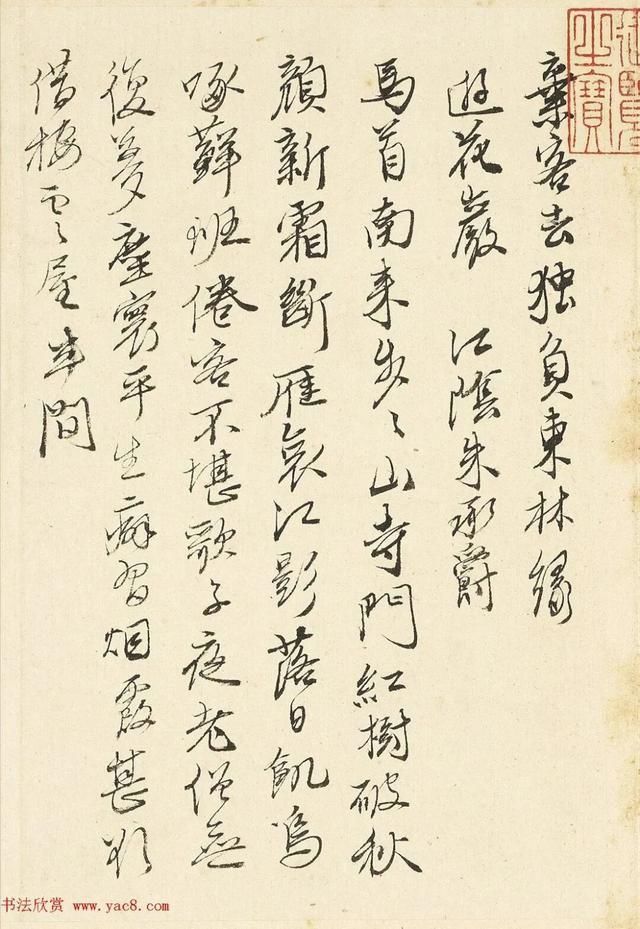 御覽之寶
棄客去独負東林緣
遊花巖 江陰朱承爵
馬首南来步〻山寺門紅樹破秋
顏新霜斷雁哀江影落日飢烏
啄蘚班倦客不堪歌子夜老僧無
復夢塵寰平生癖習烟霞甚欲
借棲雲屋半間
书法欣赏 www.yac8.com